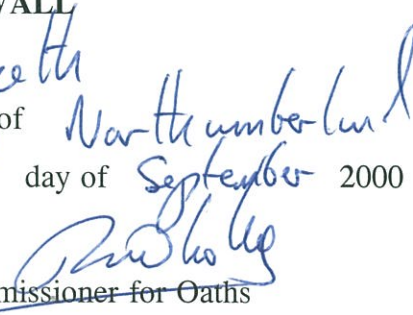 WALL
of Northumberland
day of September 2000
missioner for Oaths